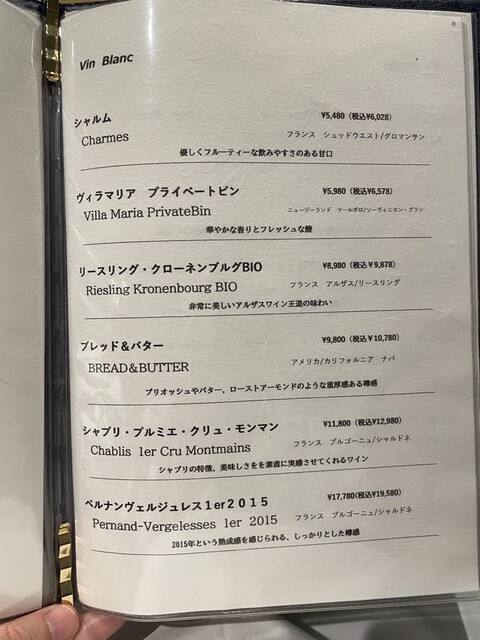 Vin Blanc
シャルム ¥5,480（税込¥6,028）
Charmes フランス シュッドウエスト/グロマンサン
優しくフルーティーな飲みやすさのある甘口
ヴィラマリア プライベートビン ¥5,980（税込¥6,578）
Villa Maria PrivateBin ニュージーランド マールボロ/ソーヴィニヨン・ブラン
華やかな香りとフレッシュな酸
リースリング・クローネンブルグBIO ¥8,980（税込￥9,878）
Riesling Kronenbourg BIO フランス アルザス/リースリング
非常に美しいアルザスワイン王道の味わい
ブレッド＆バター ¥9,800（税込￥10,780）
BREAD＆BUTTER アメリカ/カリフォルニア ナパ
ブリオッシュやバター、ローストアーモンドのような重厚感ある樽感
シャブリ・プルミエ・クリュ・モンマン ¥11,800（税込¥12,980）
Chablis 1er Cru Montmains フランス ブルゴーニュ/シャルドネ
シャブリの特徴、美味しさをを素直に実感させてくれるワイン
ペルナンヴェルジュレス１er２０１５ ¥17,780(税込¥19,580）
Pernand-Vergelesses 1er 2015 フランス ブルゴーニュ/シャルドネ
2015年という熟成感を感じられる、しっかりとした樽感